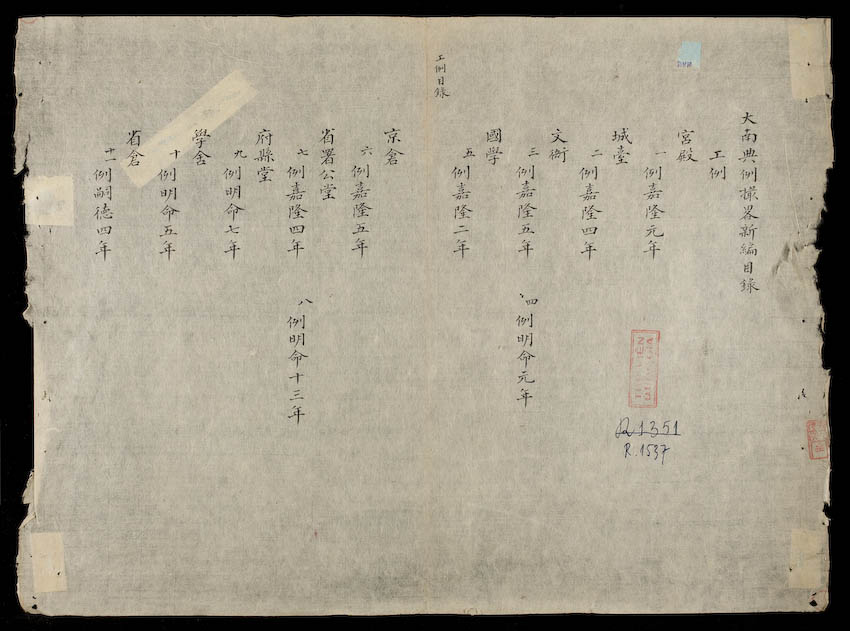 大南典例撮畧新編目錄
工例
宮殿
一例嘉隆元年
城臺
二例嘉隆四年
文
三例嘉隆五年 四例明命元年
國學
五例嘉隆二年
工例目錄
京倉
六例嘉隆五年
省署公堂
七例嘉隆四年 八例明命十三年
府縣堂
九例明命七年
學舍
十例明命五年
省倉
十一例嗣德四年
R1351
R.1537